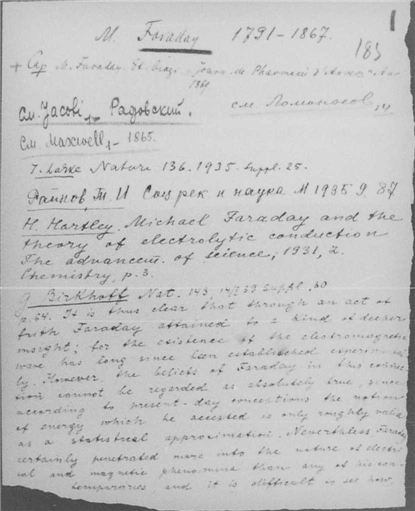 1
M. Faraday 1791–1867.
183
+ M. Faraday. Et. biogr. Journ. de Pharmacie d'Anvers
1861
см. Jacobi, Радовский. см. Ломоносов,
см. Maxwell, – 1865.
J. Nature 136. 1935. Suppl. 25.
Райнов, Т. И Соц рек и наука М 1935 9. 87
H. Hartley. Michael Faraday and the
theory of electrolytic conduction
The advancem. of science, 1931, 2.
Chemistry, p. 3.
G Birkhoff Nat. 143, Suppl. 60
p. 64. It is thus clear that through an act of
faith Faraday attained to a kind of deeper
insight; for the existence of the electromagnetic
wave has long since been established experimental
by. However, the beliefs of Faraday in this connec
tion cannot be regarded as absolutely true, since
according to present-day conceptions the notion
of energy which he accepted is only roughly valid
as a statistical approximation. Nevertheless, Faraday
certainly penetrated more into the nature of electri
cal and magnetic phenomena than any of his con
temporaries, and it is difficult to see how